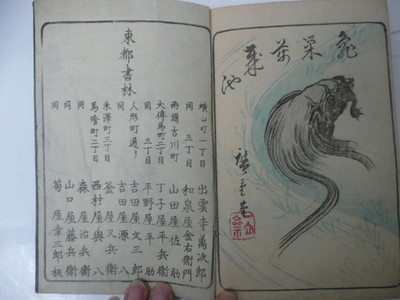 亀
東都書林
横山町一丁目 出雲寺萬次郎
同 三丁目 和泉屋金右衛門
両國吉川町 山田屋佐助
大傳馬町二丁目 丁子屋平兵衛
同 三丁目 平野屋平助
人形町通り 吉田屋文三郎
同 吉田屋源八
米澤町三丁目 釜屋又兵衛
馬喰町二丁目 西村屋與八
同 森屋治兵衛
同 山口屋藤兵衛
同 菊屋幸三郎板